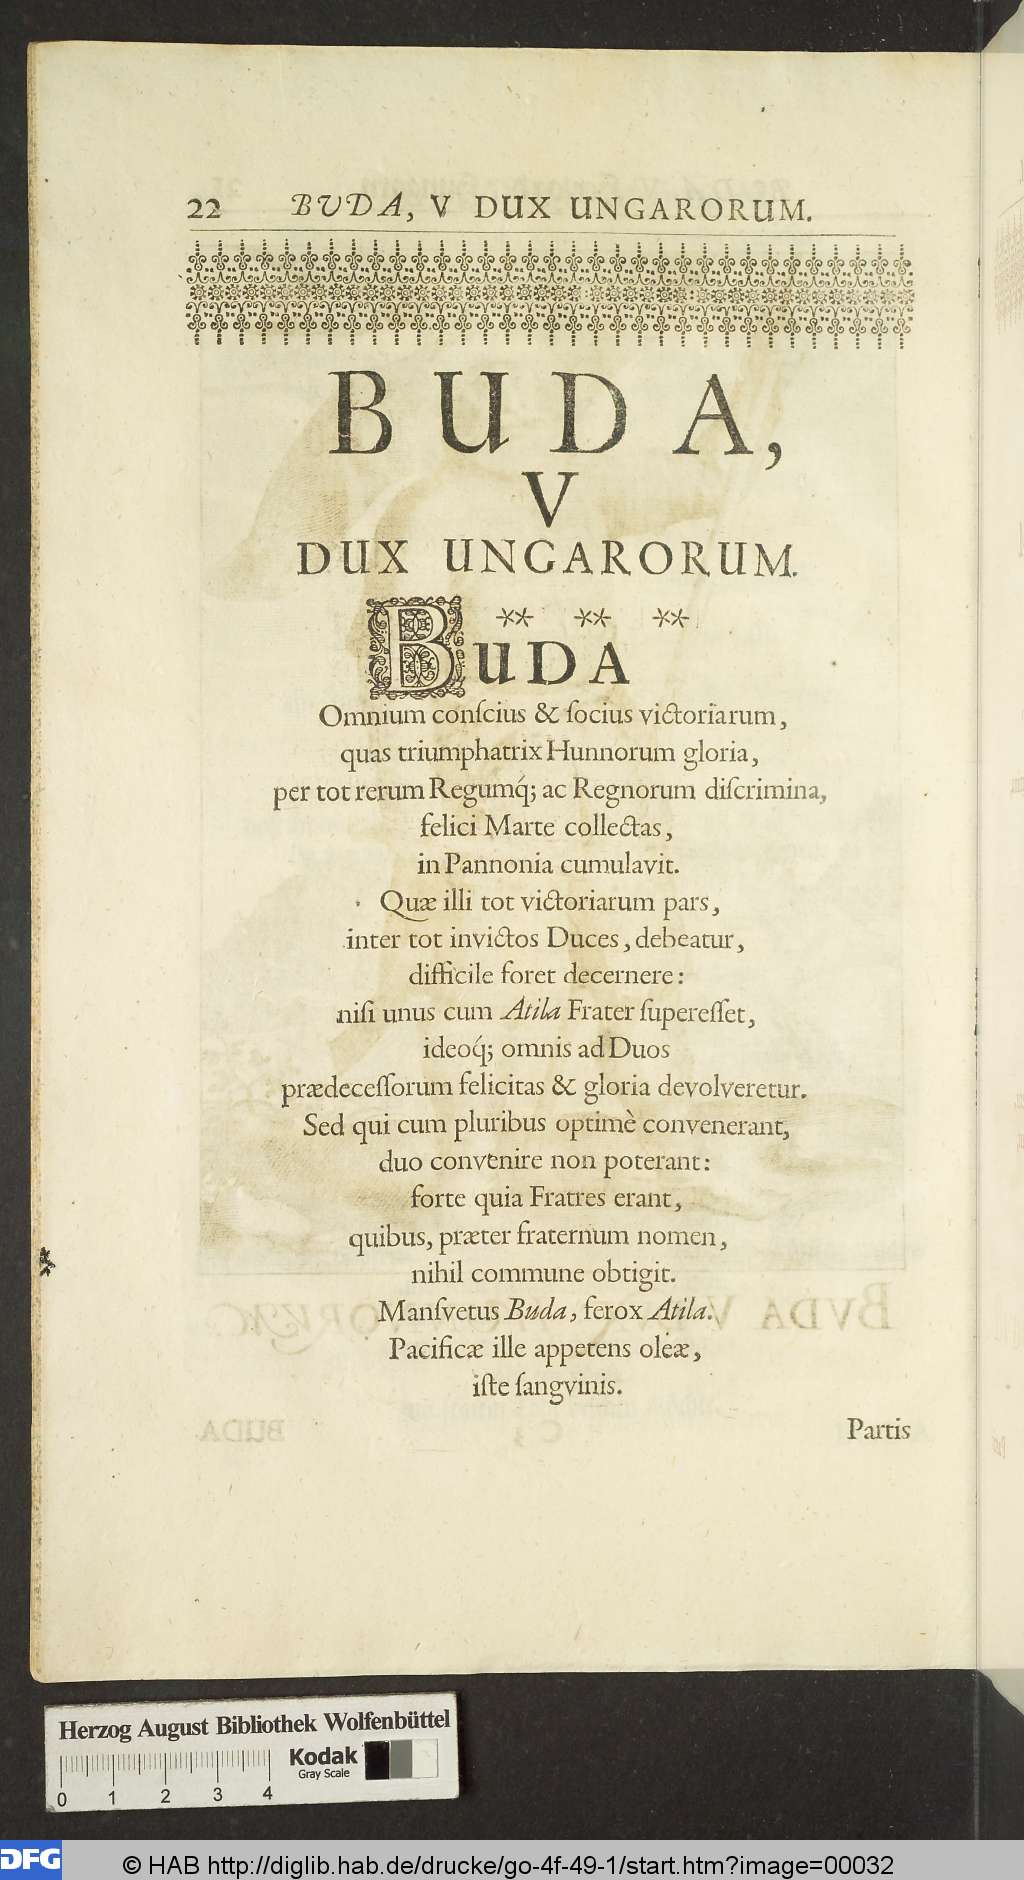 22 BUDA, V DUX UNGARORUM.
BUDA,
V
DUX UNGARORUM.
** ** **
BUDA
Omnium conſcius & ſocius victoriarum,
quas triumphatrix Hunnorum gloria,
per tot rerum Regumq́; ac Regnorum diſcrimina,
felici Marte collectas,
in Pannonia cumulavit.
Quæ illi tot victoriarum pars,
inter tot invictos Duces, debeatur,
difficile foret decernere:
niſi unus cum Atila Frater ſupereſſet,
ideoq́; omnis ad Duos
prædeceſſorum felicitas & gloria devolveretur.
Sed qui cum pluribus optimè convenerant,
duo convenire non poterant:
forte quia Fratres erant,
quibus, præter fraternum nomen,
nihil commune obtigit.
Manſvetus Buda, ferox Atila.
Pacificæ ille appetens oleæ,
iſte ſangvinis.
Partis
Herzog August Bibliothek Wolfenbüttel
Kodak
Gray Scale
0 1 2 3 4
DFG
© HAB http://diglib.hab.de/drucke/go-4f-49-1/start.htm?image=00032